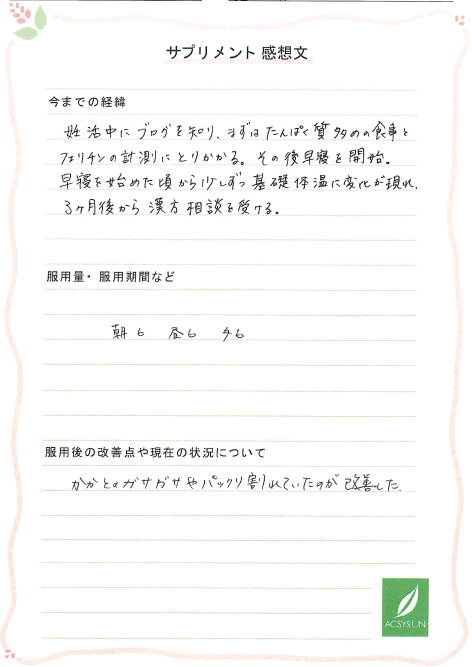 サプリメント 感想文
今までの経緯
妊活中にブログを知り、まずはたんぱく質多めの食事と
フェリチンの計測にとりかかる。その後早寝を開始。
早寝を始めた頃から少しずつ基礎体温に変化が現れ、
3ヶ月後から漢方相談を受ける。
服用量・服用期間など
朝6 昼6 夕6
服用後の改善点や現在の状況について
かかとのガサガサやパックリ割れていたのが改善した。
ACSYSUN